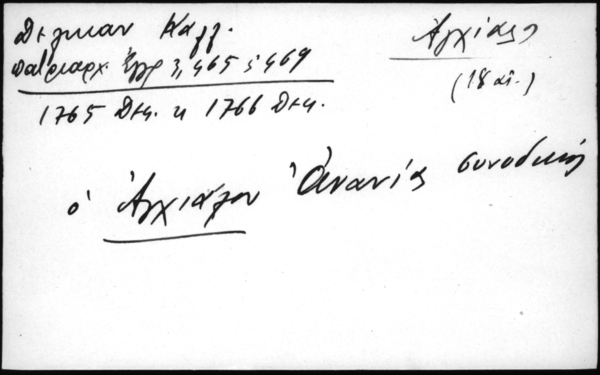 Δελικαν Καλλ.
Πατριαρχ. Εγγρ 3, 465 5 469
1765 Δεκ. κ 1766 Δεκ.
Ἀγχίαλος
(18 αι.)
ὁ Ἀγχιάλου Ἀνανίας συνοδικός